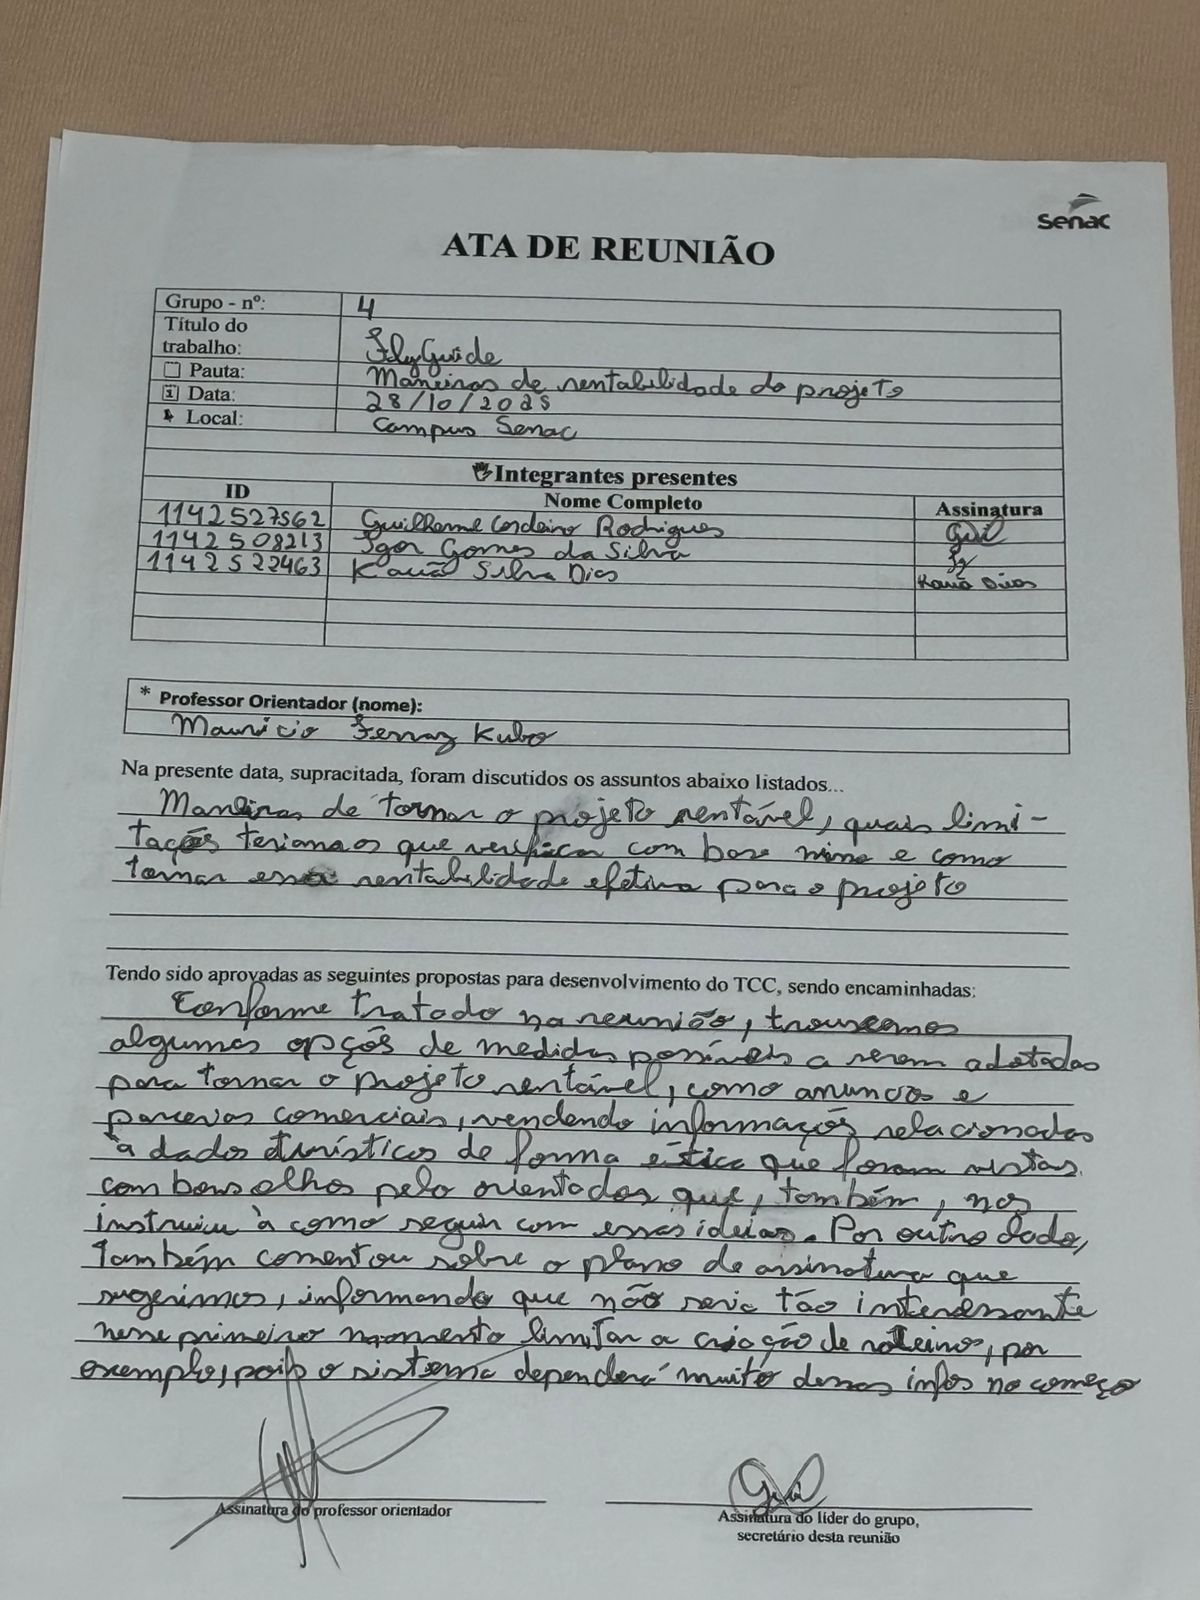 senac
ATA DE REUNIÃO
Grupo - nº: 4
Título do
trabalho: FlyGuide
Pauta: Maneiras de rentabilidade do projeto
Data: 28/10/2025
Local: Campus Senac
Integrantes presentes
ID Nome Completo Assinatura
1142527562 Guilherme Cordeiro Rodrigues Gui
1142508213 Igor Gomes da Silva
1142522463 Kauã Silva Dias Kauã Dias
* Professor Orientador (nome):
Mauricio Ferraz Kubo
Na presente data, supracitada, foram discutidos os assuntos abaixo listados...
Maneiras de tornar o projeto rentável, quais limi-
tações teriamos que verificar com base nisso e como
tornar essa rentabilidade efetiva para o projeto
Tendo sido aprovadas as seguintes propostas para desenvolvimento do TCC, sendo encaminhadas:
Conforme tratado na reunião, trouxemos
algumas opçõs de medidas possíveis a serem adotadas
para tornar o projeto rentável, como anuncios e
parcerias comerciais, vendendo informaçõs relacionadas
à dados turísticos de forma ética que foram vistas
com bons olhos pelo orientador que, também, nos
instruiu à como seguir com essas ideias. Por outro lado,
também comentou sobre o plano de assinatura que
sugerimos, informando que não seria tão interessante
nesse primeiro momento limitar a criação de roteiros, por
exemplo, pois o sistema dependerá muito dessas infos no começo
Assinatura do professor orientador
Gui
Assinatura do líder do grupo,
secretário desta reunião